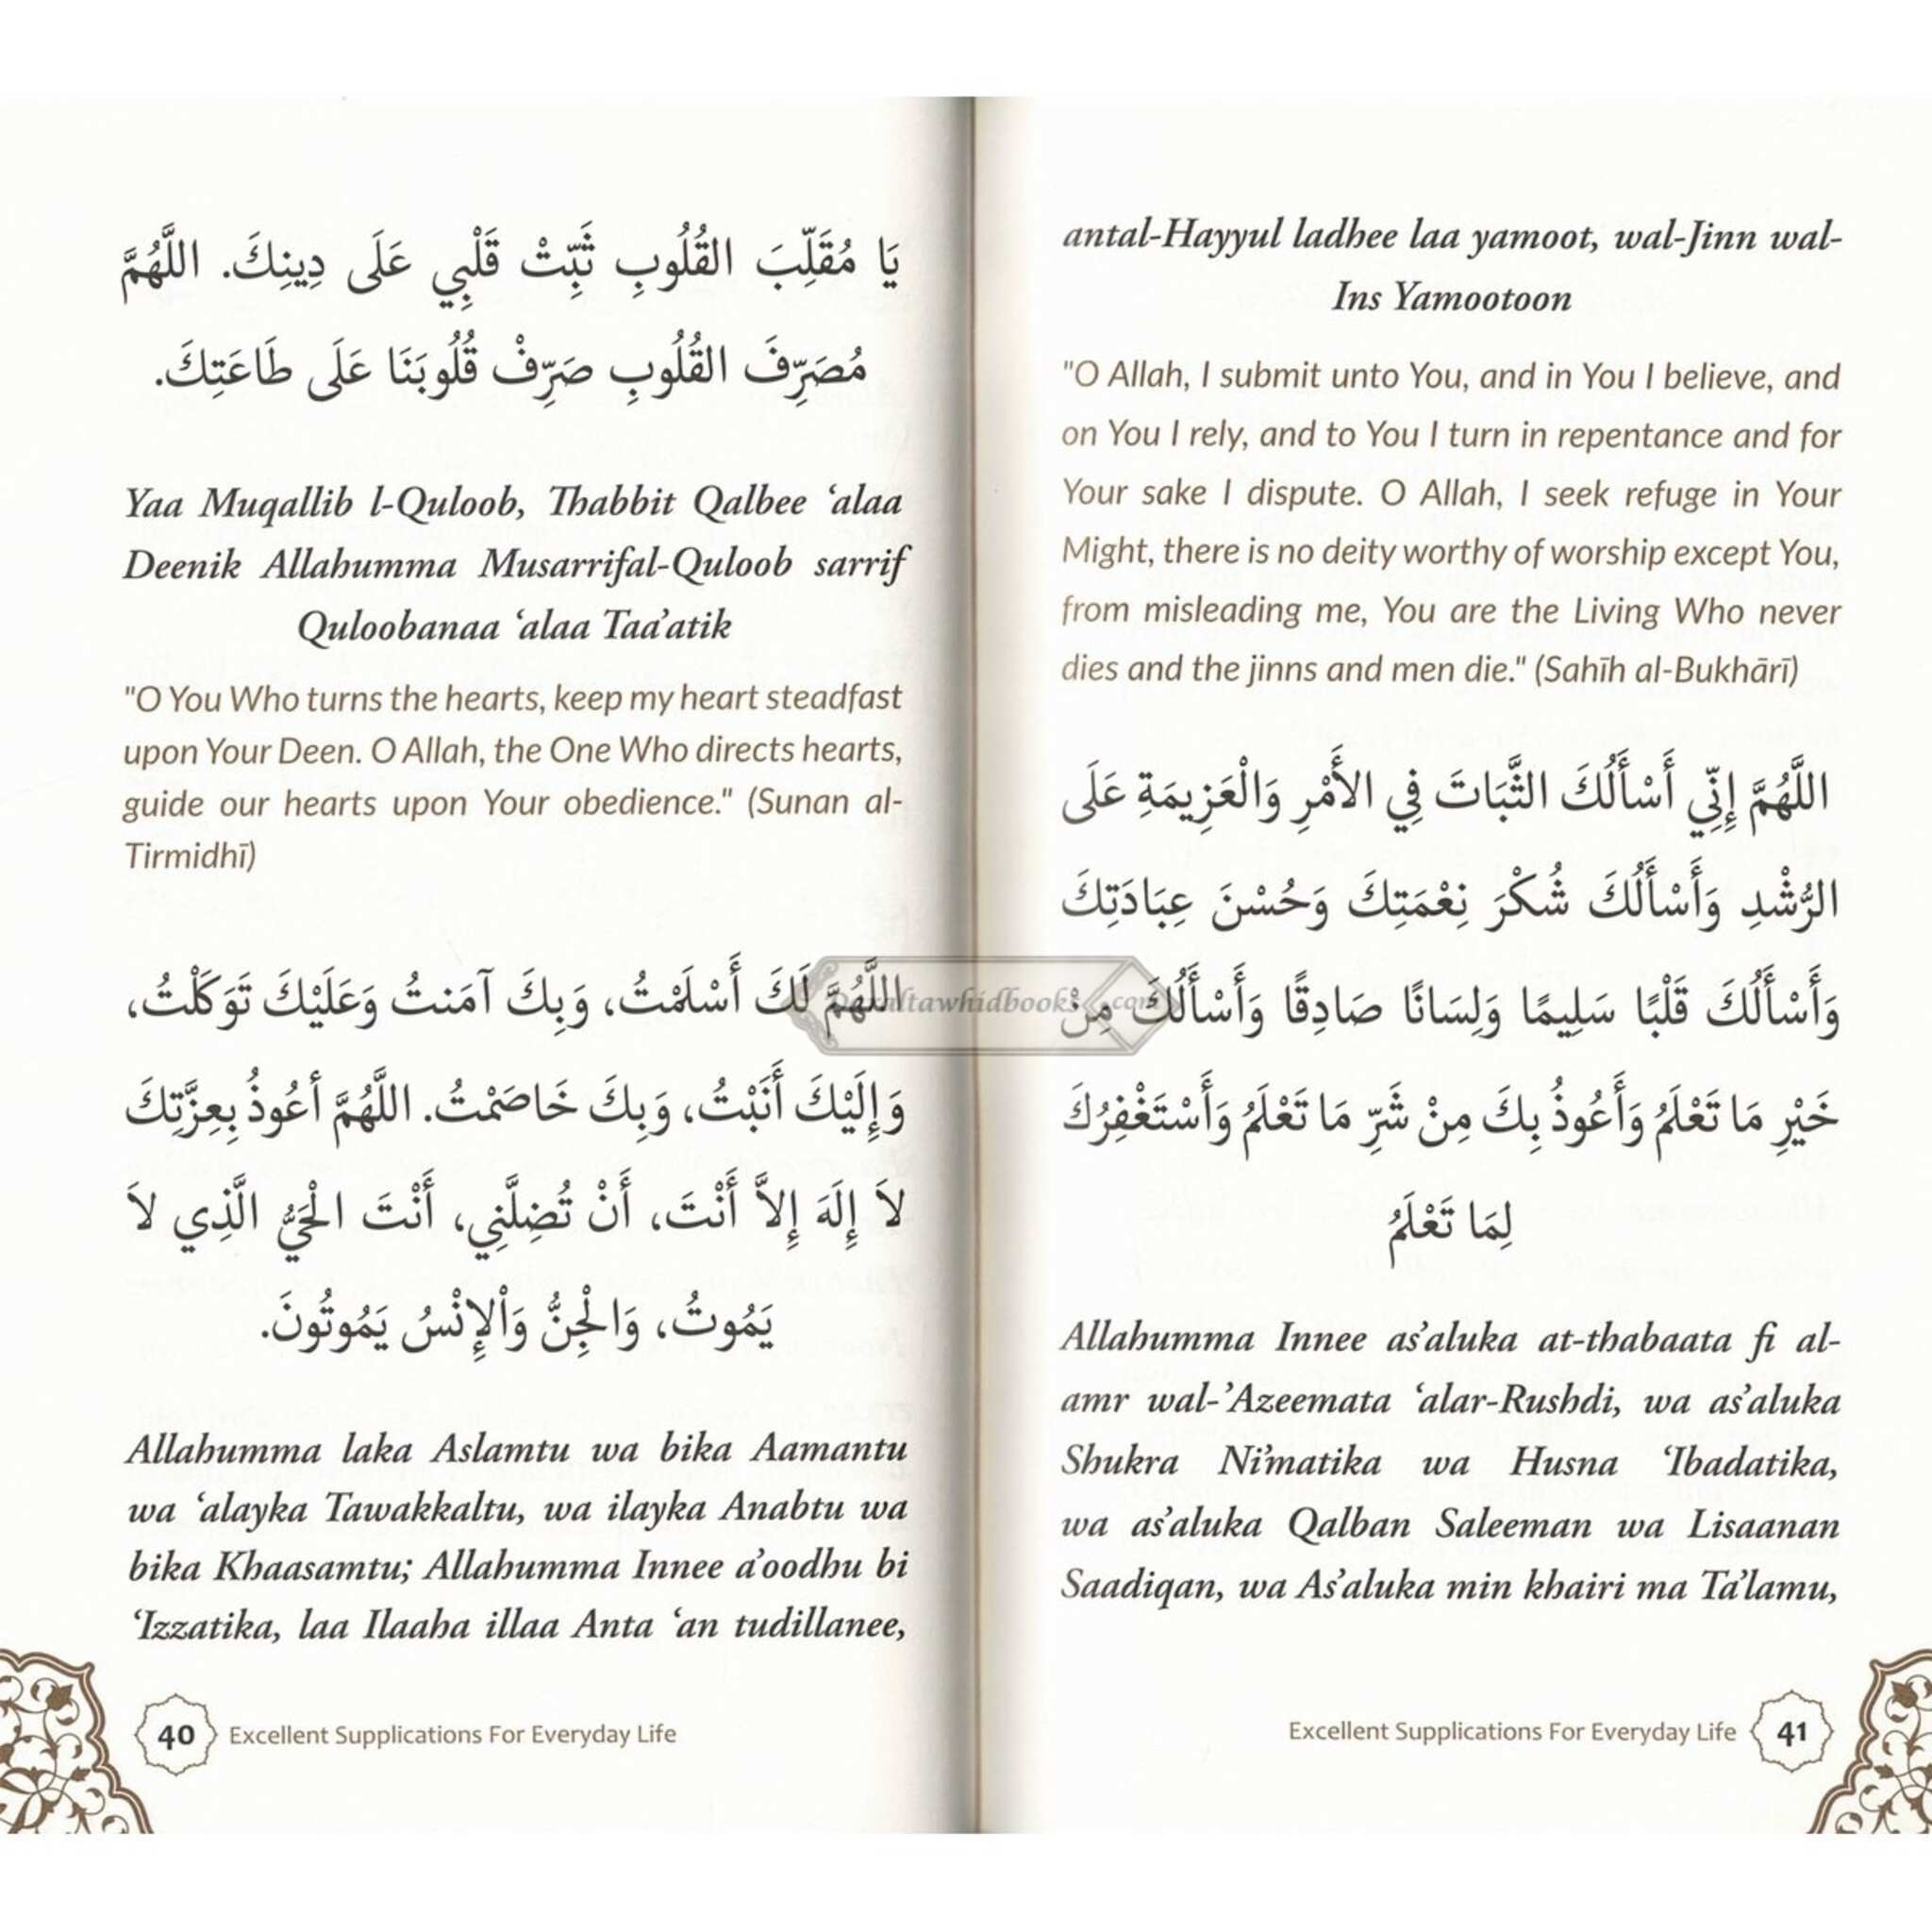 يَا مُقَلِّبَ القُلُوبِ ثَبِّتْ قَلْبِي عَلَى دِينِكَ. اللَّهُمَّ
مُصَرِّفَ القُلُوبِ صَرِّفْ قُلُوبَنَا عَلَى طَاعَتِكَ.
Yaa Muqallib l-Quloob, Thabbit Qalbee ‘alaa
Deenik Allahumma Musarrifal-Quloob sarrif
Quloobanaa ‘alaa Taa’atik
"O You Who turns the hearts, keep my heart steadfast
upon Your Deen. O Allah, the One Who directs hearts,
guide our hearts upon Your obedience." (Sunan al-
Tirmidhī)
اللَّهُمَّ لَكَ أَسْلَمْتُ، وَبِكَ آمَنتُ وَعَلَيْكَ تَوَكَلْتُ،
وَإِلَيْكَ أَنَبْتُ، وَبِكَ خَاصَمْتُ. اللَّهُمَّ أعُوذُ بِعِزَّتِكَ
لاَ إِلَهَ إِلاَّ أَنْتَ، أَنْ تُضِلَّنِي، أَنْتَ الْحَيُّ الَّذِي لاَ
يَمُوتُ، وَالْجِنُّ وَاْلإِنْسُ يَمُوتُونَ.
Allahumma laka Aslamtu wa bika Aamantu
wa ‘alayka Tawakkaltu, wa ilayka Anabtu wa
bika Khaasamtu; Allahumma Innee a’oodhu bi
‘Izzatika, laa Ilaaha illaa Anta ‘an tudillanee,
40 Excellent Supplications For Everyday Life
antal-Hayyul ladhee laa yamoot, wal-Jinn wal-
Ins Yamootoon
"O Allah, I submit unto You, and in You I believe, and
on You I rely, and to You I turn in repentance and for
Your sake I dispute. O Allah, I seek refuge in Your
Might, there is no deity worthy of worship except You,
from misleading me, You are the Living Who never
dies and the jinns and men die." (Sahīh al-Bukhārī)
اللَّهُمَّ إِنِّي أَسْأَلُكَ الثَّبَاتَ فِي الأَمْرِ وَالْعَزِيمَةِ عَلَى
الرُّشْدِ وَأَسْأَلُكَ شُكْرَ نِعْمَتِكَ وَحُسْنَ عِبَادَتِكَ
وَأَسْأَلُكَ قَلْبًا سَلِيمًا وَلِسَانًا صَادِقًا وَأَسْأَلُكَ مِنْ
خَيْرِ مَا تَعْلَمُ وَأَعُوذُ بِكَ مِنْ شَرِّ مَا تَعْلَمُ وَأَسْتَغْفِرُكَ
لِمَا تَعْلَمُ
Allahumma Innee as’aluka at-thabaata fi al-
amr wal-’Azeemata ‘alar-Rushdi, wa as’aluka
Shukra Ni’matika wa Husna ‘Ibadatika,
wa as’aluka Qalban Saleeman wa Lisaanan
Saadiqan, wa As’aluka min khairi ma Ta’lamu,
Excellent Supplications For Everyday Life 41
Daraltawhidbooks.com